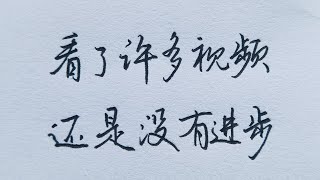 看了许多视频
还是没有进步